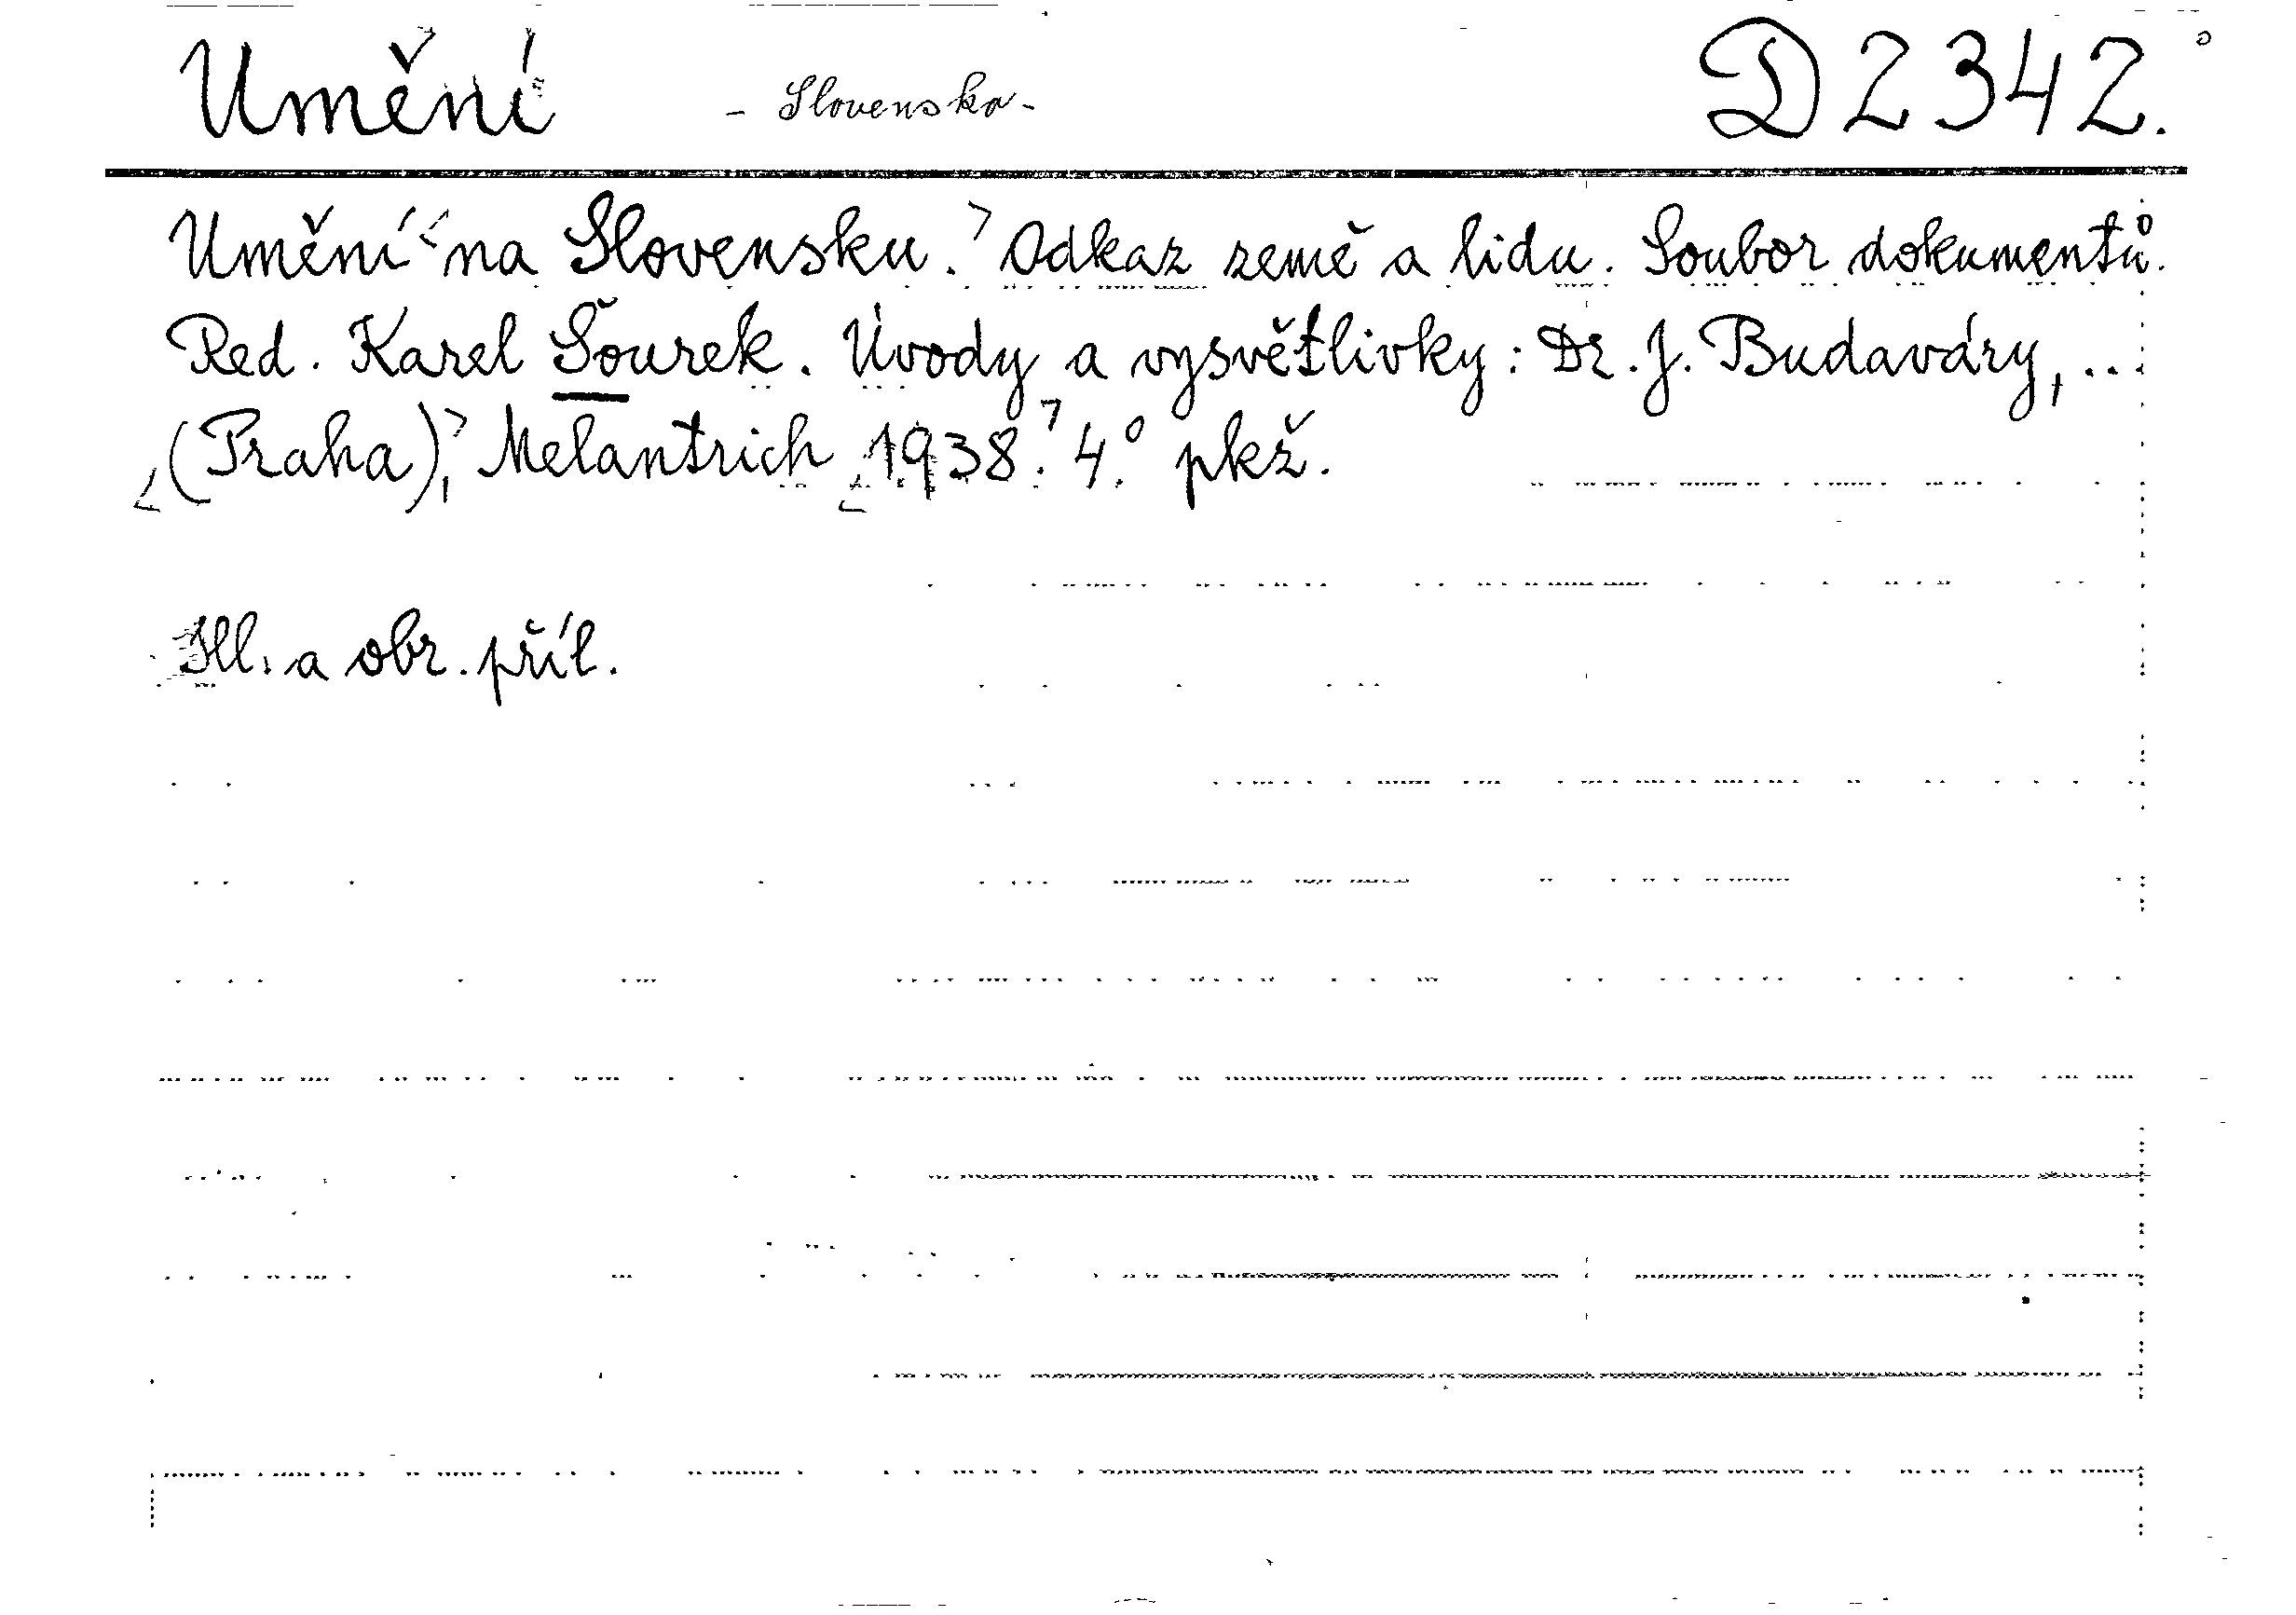 Umění - Slovensko - D 2342.
Umění na Slovensku. Odkaz země a lidu. Soubor dokumentů.
Red. Karel Šourek. Úvody a vysvětlivky: Dr. J. Budaváry, ...
(Praha), Melantrich 1938. 4.° pkž.
Ill. a obr. příl.